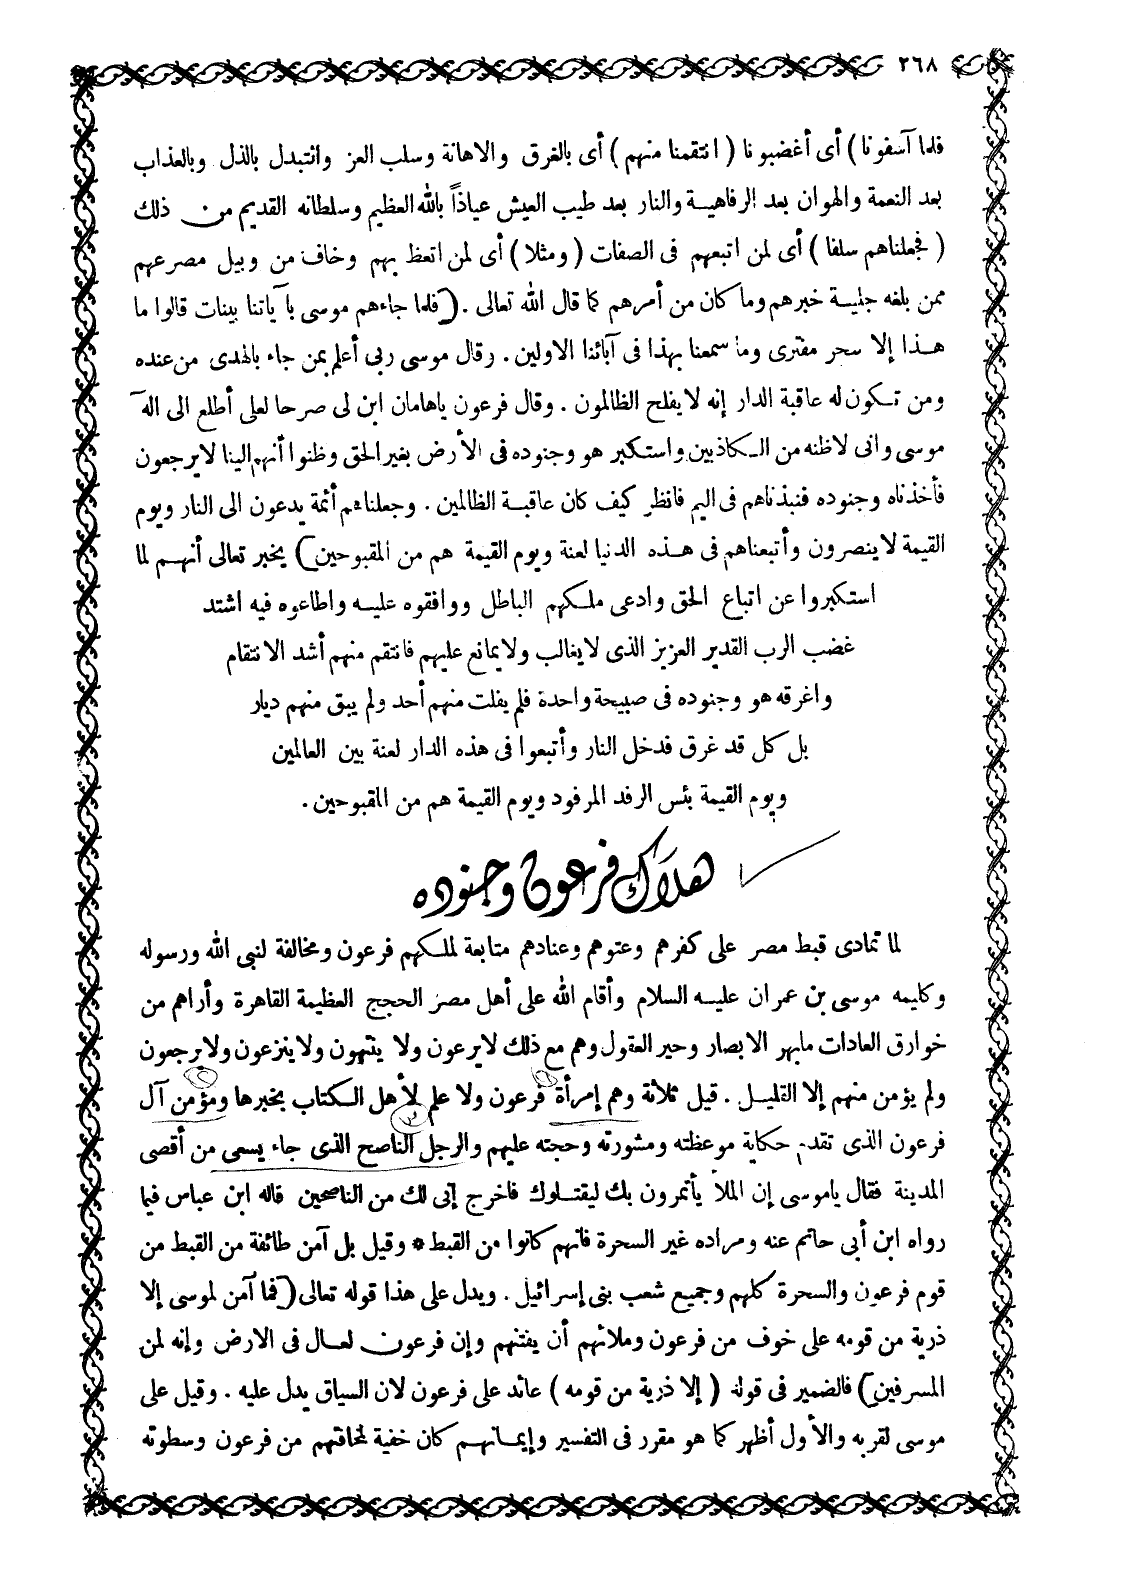 ٢٦٨
فلما آسفونا ) أى أغضبونا ( انتقمنا منهم ) أى بالغرق والاهانة وسلب العز وانتبدل بالذل وبالعذاب
بعد النعمة والهوان بعد الرفاهيـة والنار بعد طيب العيش عياذاً بالله العظيم وسلطانه القديم من ذلك
( فجعلناهم سلفا ) أى لمن اتبعهم فى الصفات ( ومثلا ) أى لمن اتعظ بهم وخاف من وبيل مصرعهم
ممن بلغه جلية خبرهم وما كان من أمرهم كما قال الله تعالى . ( فلما جاءهم موسى بآياتنا بينات قالوا ما
هـذا إلا سحر مفترى وما سمعنا بهذا فى آبائنا الاولين . وقال موسى ربى أعلم بمن جاء بالهدى من عنده
ومن تـكون له عاقبة الدار إنه لا يفلح الظالمون . وقال فرعون ياهامان ابن لى صرحا لعلى أطلع الى اله
موسى وانى لاظنه من الـكاذبين واستكبر هو وجنوده فى الأرض بغير الحق وظنوا أنهم الينا لا يرجعون
فأخذناه وجنوده فنبذناهم فى اليم فانظر كيف كان عاقبة الظالمين . وجعلناهم أئمة يدعون الى النار ويوم
القيمة لا ينصرون وأتبعناهم فى هـذه الدنيا لعنة ويوم القيمة هم من المقبوحين ) يخبر تعالى أنهـم لما
استكبروا عن اتباع الحق وادعى ملـكهم الباطل ووافقوه عليـه واطاعوه فيه اشتد
غضب الرب القدير العزيز الذى لا يغالب ولا يمانع عليهم فانتقم منهم أشد الانتقام
واغرقه هو وجنوده فى صبيحة واحدة فلم يفلت منهم أحد ولم يبق منهم ديار
بل كل قد غرق فدخل النار وأتبعوا فى هذه الدار لعنة بين العالمين
ويوم القيمة بئس الرفد المرفود ويوم القيمة هم من المقبوحين .
هلاك فرعون وجنوده
لما تمادى قبط مصر على كفرهم وعتوهم وعنادهم متابعة لملـكهم فرعون ومخالفة لنبى الله ورسوله
وكليمه موسى بن عمران عليـه السلام وأقام الله على أهل مصر الحجج العظيمة القاهرة وأراهم من
خوارق العادات مابهر الابصار وحير العقول وهم مع ذلك لا يرعون ولا ينتهون ولا ينزعون ولا يرجعون
ولم يؤمن منهم إلا القليـل . قيل ثلاثة وهم إمرأة فرعون ولا علم لأهل الـكتاب بخبرها ومؤمن آل
فرعون الذى تقدم حكاية موعظته ومشورته وحجته عليهم والرجل الناصح الذى جاء يسعى من أقصى
المدينة فقال ياموسى إن الملأ يأتمرون بك ليقتـلوك فاخرج إنى لك من الناصحين قاله ابن عباس فيما
رواه ابن أبى حاتم عنه ومراده غير السحرة فانهم كانوا من القبط * وقيل بل آمن طائفة من القبط من
قوم فرعون والسحرة كلهم وجميع شعب بنى إسرائيل . ويدل على هذا قوله تعالى ( فما آمن لموسى إلا
ذرية من قومه على خوف من فرعون وملائهم أن يفتنهم وإن فرعون لعـال فى الارض وإنه لمن
المسرفين ) فالضمير فى قوله ( إلا ذرية من قومه ) عائد على فرعون لان السياق يدل عليه . وقيل على
موسى لقربه والأول أظهر كما هو مقرر فى التفسير وإيمـانهـم كان خفية لمخافتهم من فرعون وسطوته